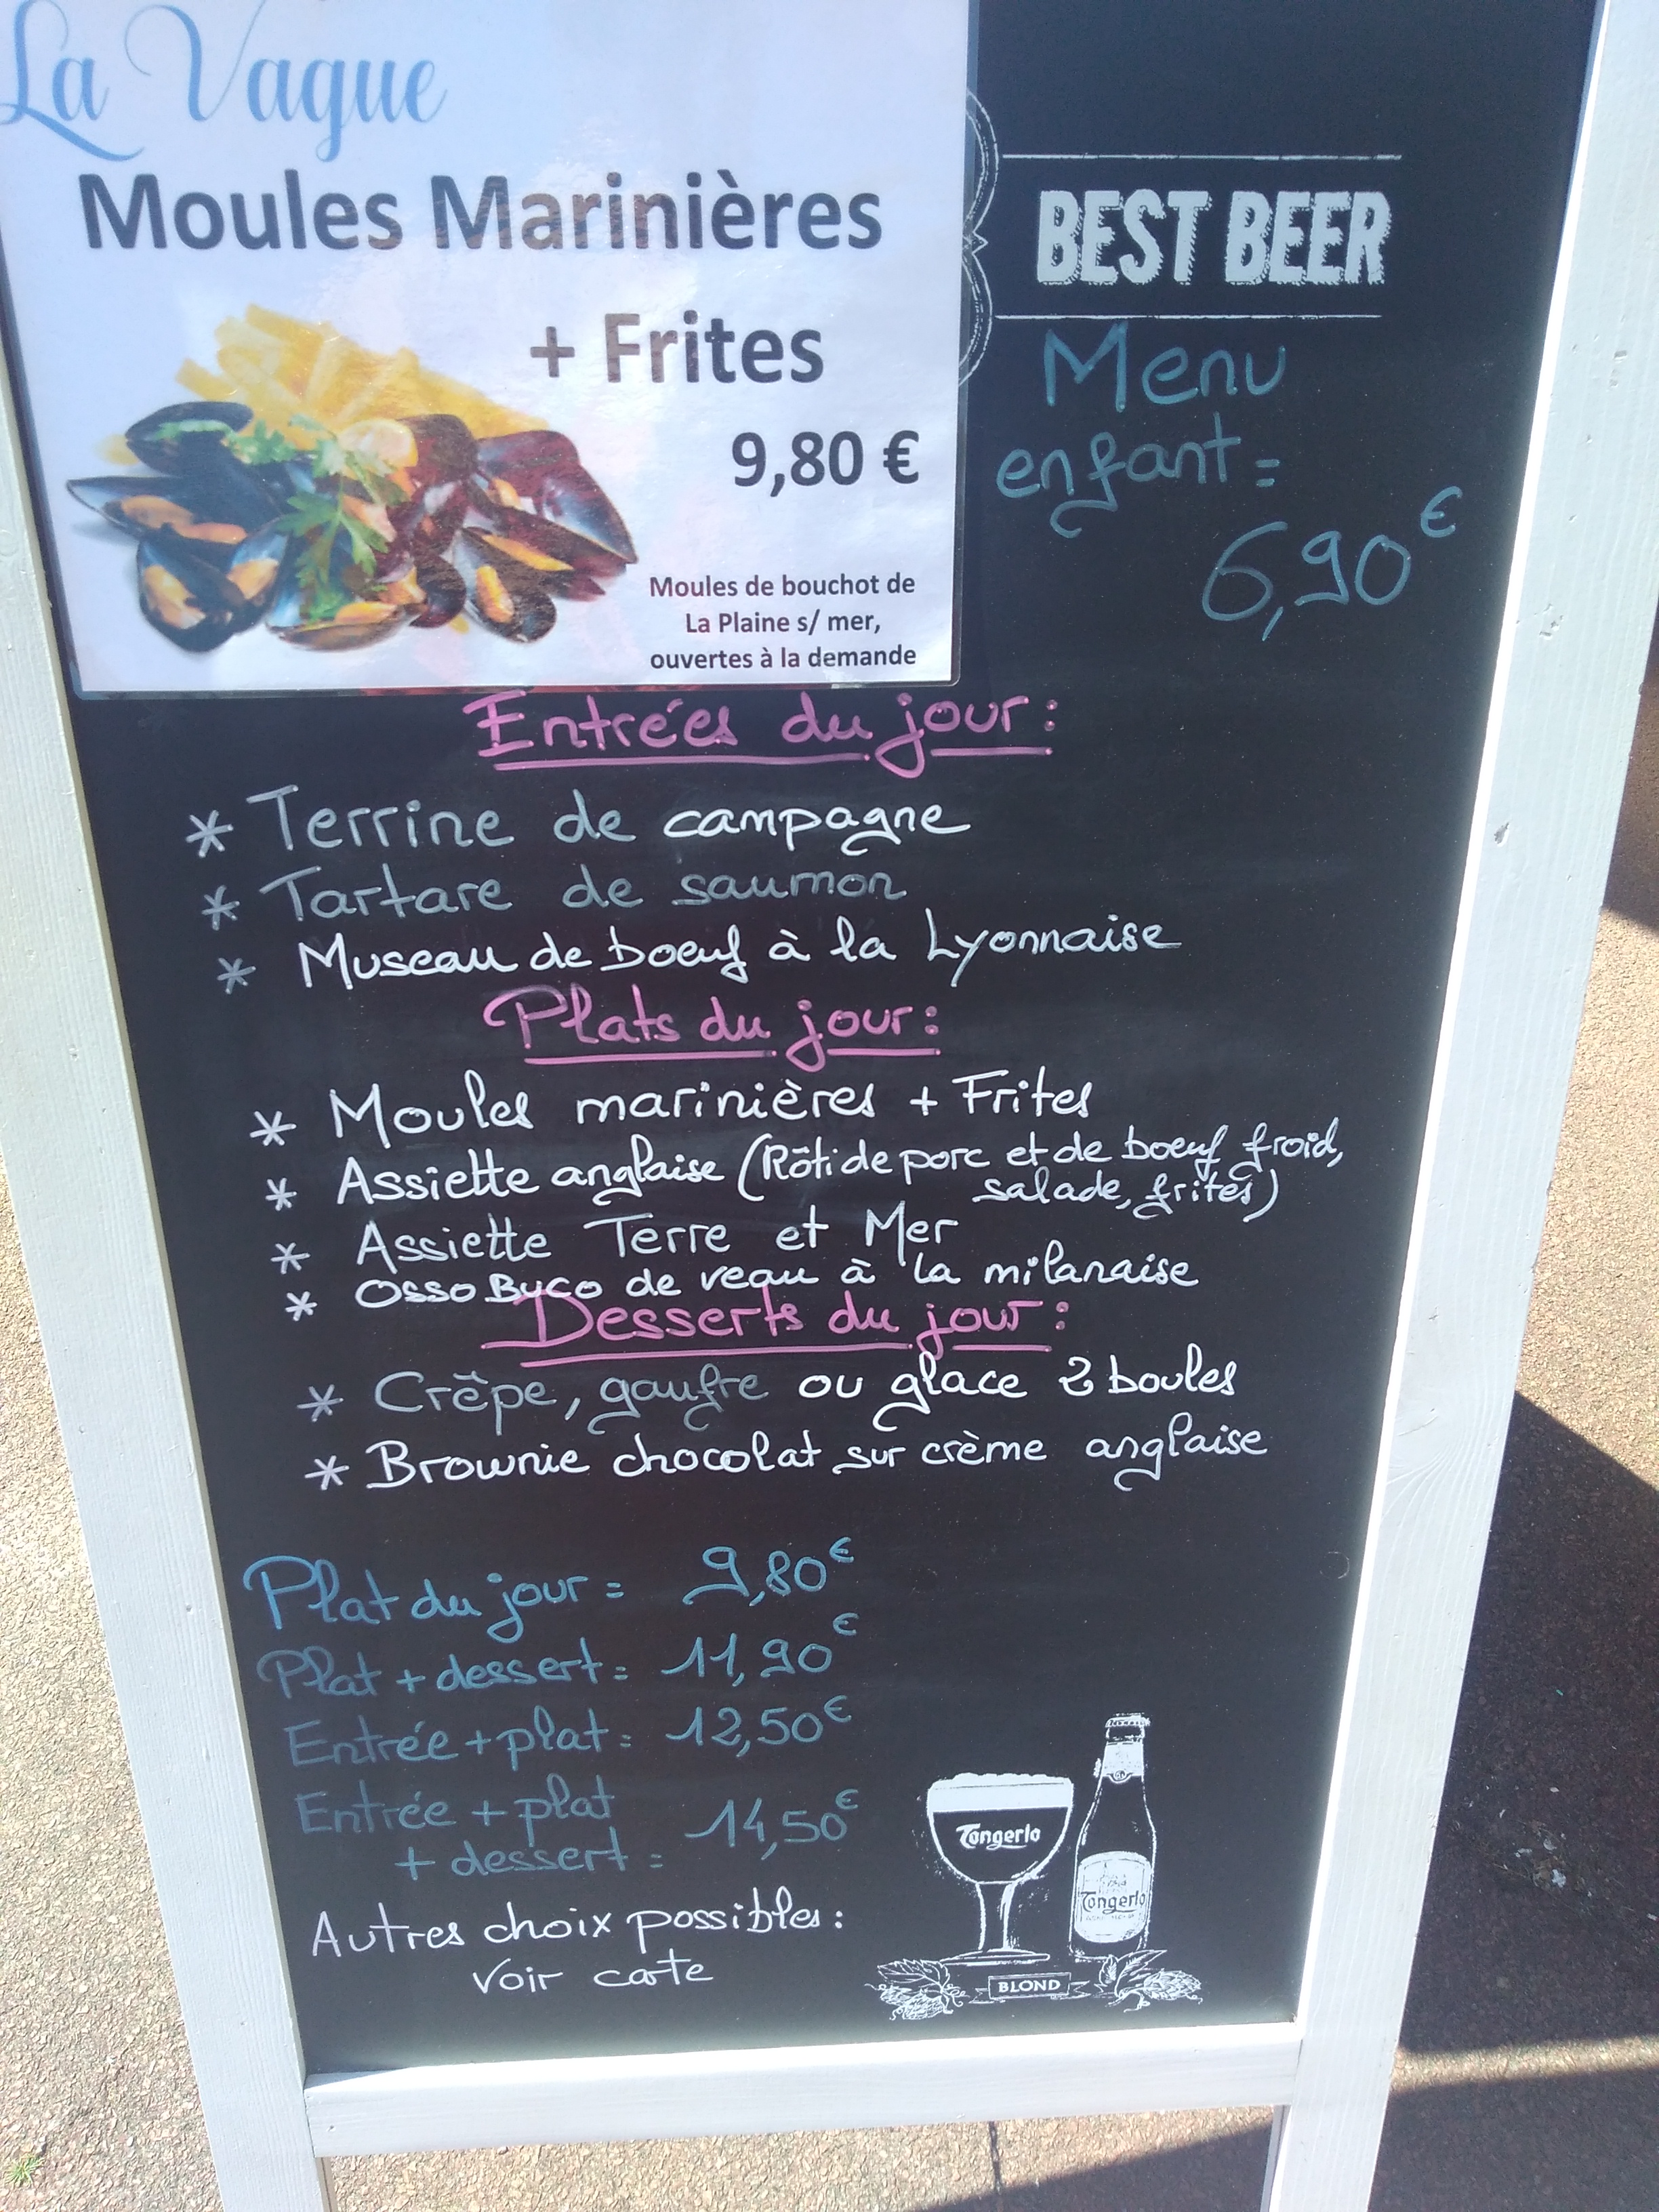 La Vague
Moules Marinières
+ Frites
9,80 €
Moules de bouchot de
La Plaine s/ mer,
ouvertes à la demande
BEST BEER
Menu
enfant =
6,90€
Entrées du jour :
* Terrine de campagne
* Tartare de saumon
* Museau de boeuf à la Lyonnaise
Plats du jour :
* Moules marinières + Frites
* Assiette anglaise (Rôti de porc et de boeuf froid,
salade, frites)
* Assiette Terre et Mer
* Osso Buco de veau à la milanaise
Desserts du jour :
* Crêpe, gaufre ou glace 2 boules
* Brownie chocolat sur crème anglaise
Plat du jour = 9,80€
Plat + dessert = 11,90€
Entrée + plat = 12,50€
Entrée + plat
+ dessert = 14,50€
Autres choix possibles :
voir carte
Tongerlo
Tongerlo
BLOND